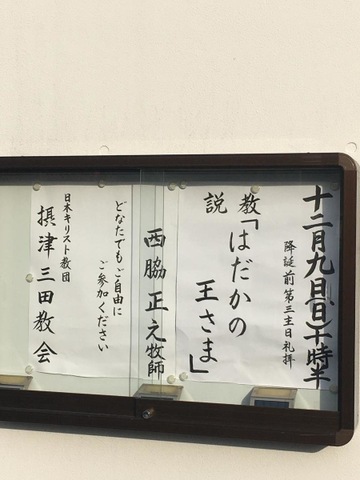 十二月九日(日)十時半
降誕前第三主日礼拝
説教「はだかの
王さま」
西脇正之牧師
どなたでもご自由に
ご参加ください
日本キリスト教団
摂津三田教会